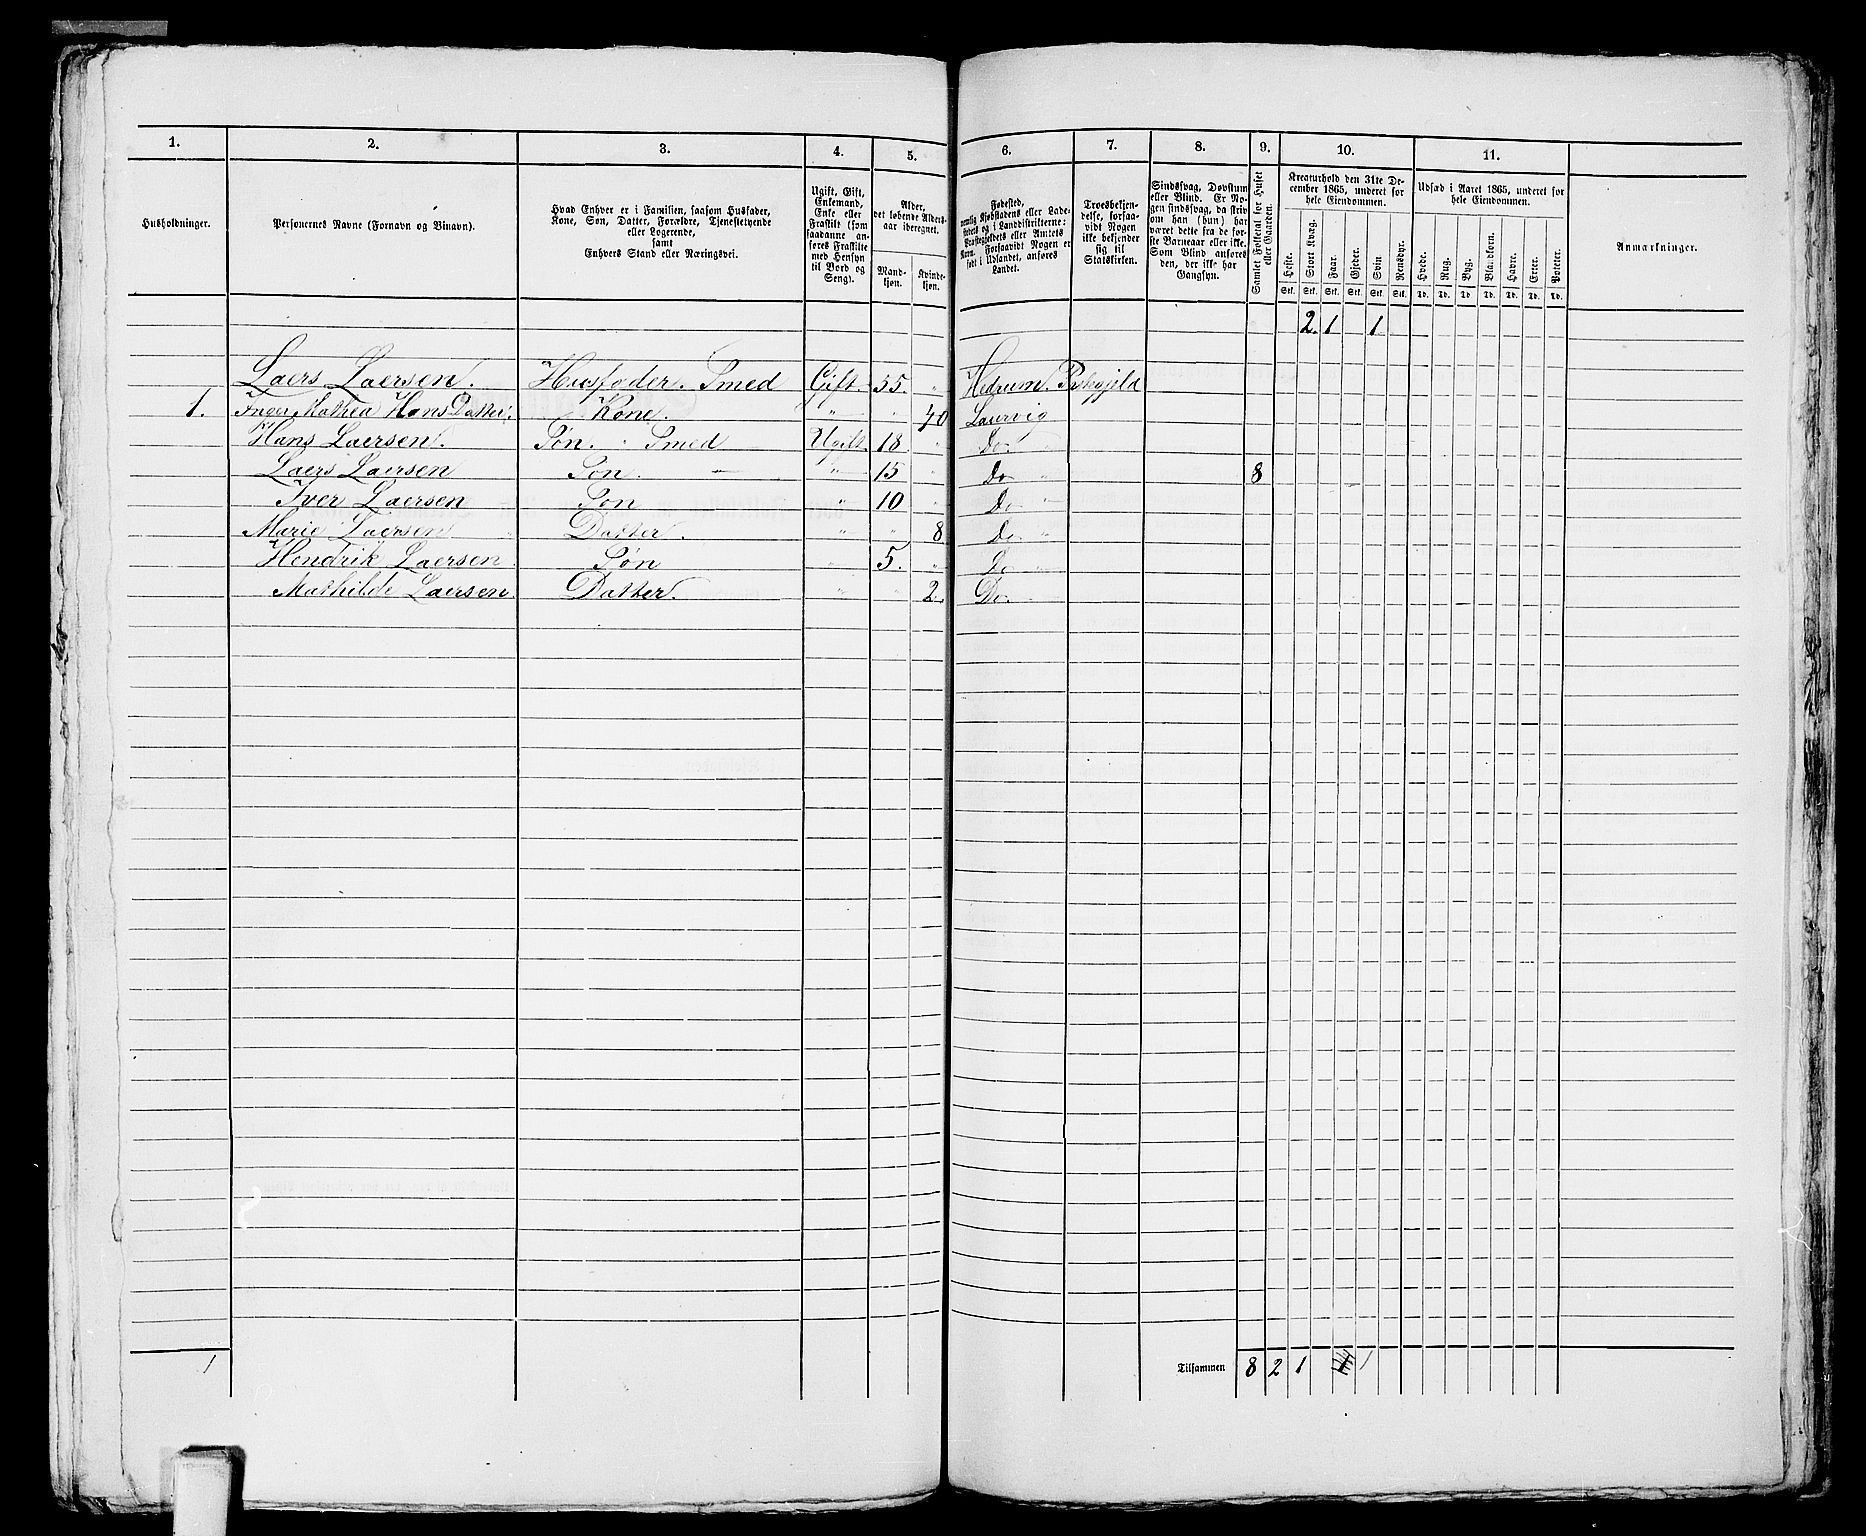 1. 2. 3. 4. 5. 6. 7. 8. 9. 10. 11.
Husholdninger.
Personernes Navne (Fornavn og Binavn).
Hvad Enhver er i Familien, saasom Husfader,
Kone, Søn, Datter, Forældre, Tjenestetyende
eller Logerende,
samt
Enhvers Stand eller Næringsvei.
Ugift, Gift,
Enkemand,
Enke eller
Fraskilt (som
saadanne an-
føres Fraskilte
med Hensyn
til Bord og
Seng).
Alder,
det løbende Alders-
aar iberegnet.
Mand-
kjøn.
Kvinde-
kjøn.
Fødested,
nemlig Kjøbstadens eller Lade-
stedets og i Landdistrikterne:
Præstegjeldets eller Amtets
Navn. Forsaavidt Nogen er
født i Udlandet, anføres
Landet.
Troesbekjen-
delse, forsaa-
vidt Nogen
ikke bekjender
sig til
Statskirken.
Sindssvag, Døvstum
eller Blind. Er No-
gen sindssvag, da skriv
om han (hun) har
været dette fra de før-
ste Barneaar eller ikke.
Som Blind anføres
den, der ikke har
Gangsyn.
Samlet Folketal for Huset
eller Gaarden.
Kreaturhold den 31te De-
cember 1865, underet for
hele Eiendommen.
Heste. Stort Kvæg. Faar. Gjeder. Svin. Rensdyr.
Stk. Stk. Stk. Stk. Stk. Stk.
Udsæd i Aaret 1865, underet for
hele Eiendommen.
Hvede. Rug. Byg. Blandkorn. Havre. Erter. Poteter.
Td. Td. Td. Td. Td. Td. Td.
Anmærkninger.
2. 1 1
Laers Laersen. Husfader. Smed Gift. 55. " Hedrum. Præstgjeld
1. Inger Mathea Hans Datter. Kone. " " 40 Laurvig
Hans Laersen. Søn. Smed Ugift 18 " Do
Laers Laersen Søn. " 15 " Do " 8
Iver Laersen Søn " 10 " Do "
Marie Laersen Datter. " " 8. Do "
Hendrik Laersen Søn " 5. " Do "
Mathilde Laersen. Datter. " " 2. Do.
1 Tilsammen 8 2 1 1